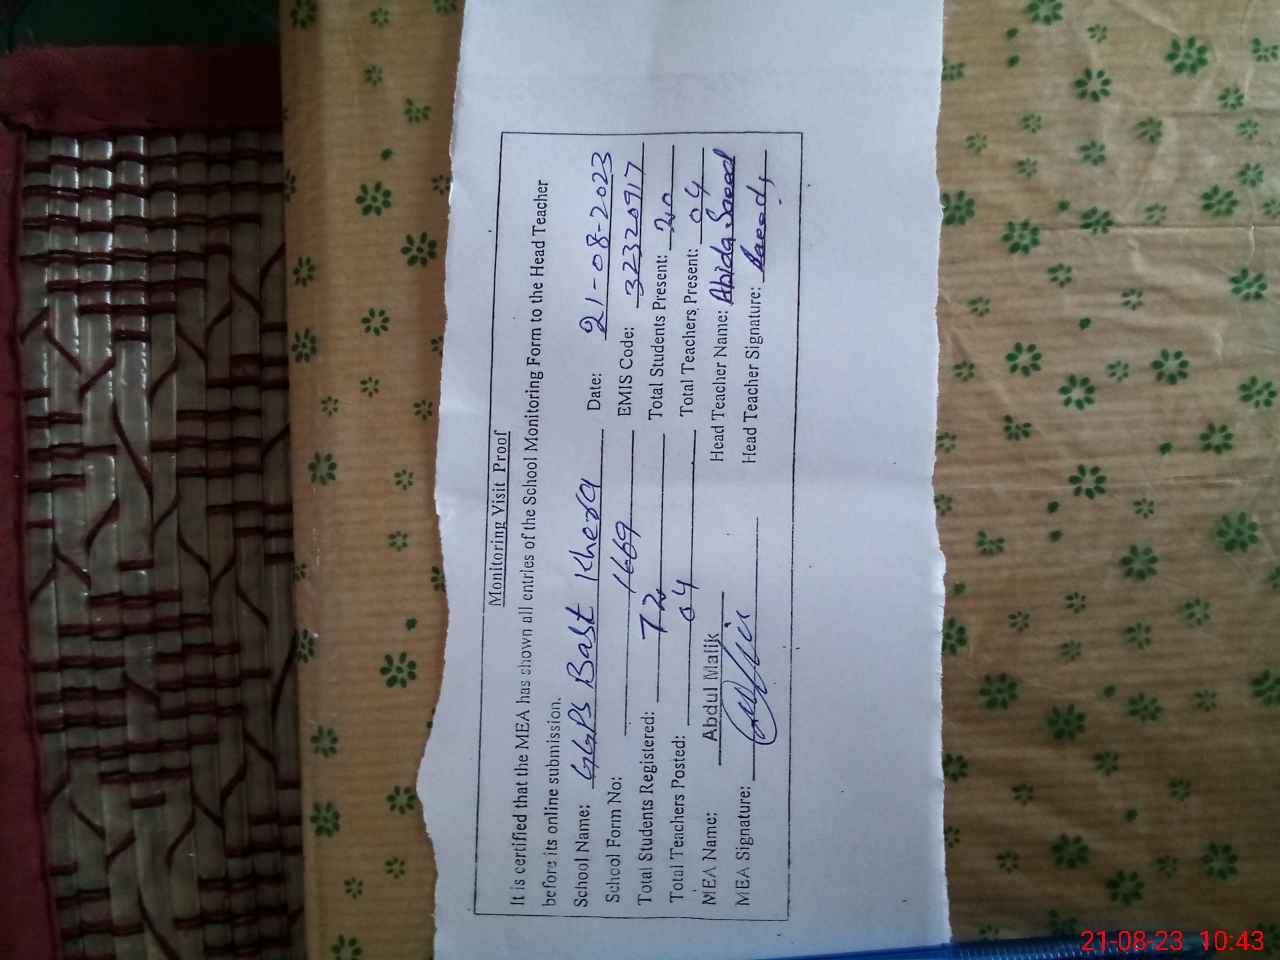 Monitoring Visit Proof
It is certified that the MEA has shown all entries of the School Monitoring Form to the Head Teacher
before its online submission.
School Name: GGPS Bast Khera Date: 21-08-2023
School Form No: 1669 EMIS Code: 32320917
Total Students Registered: 72 Total Students Present: 20
Total Teachers Posted: 04 Total Teachers Present: 04
MEA Name: Abdul Malik Head Teacher Name: Abida Saeed
MEA Signature: Head Teacher Signature:
21-08-23 10:43